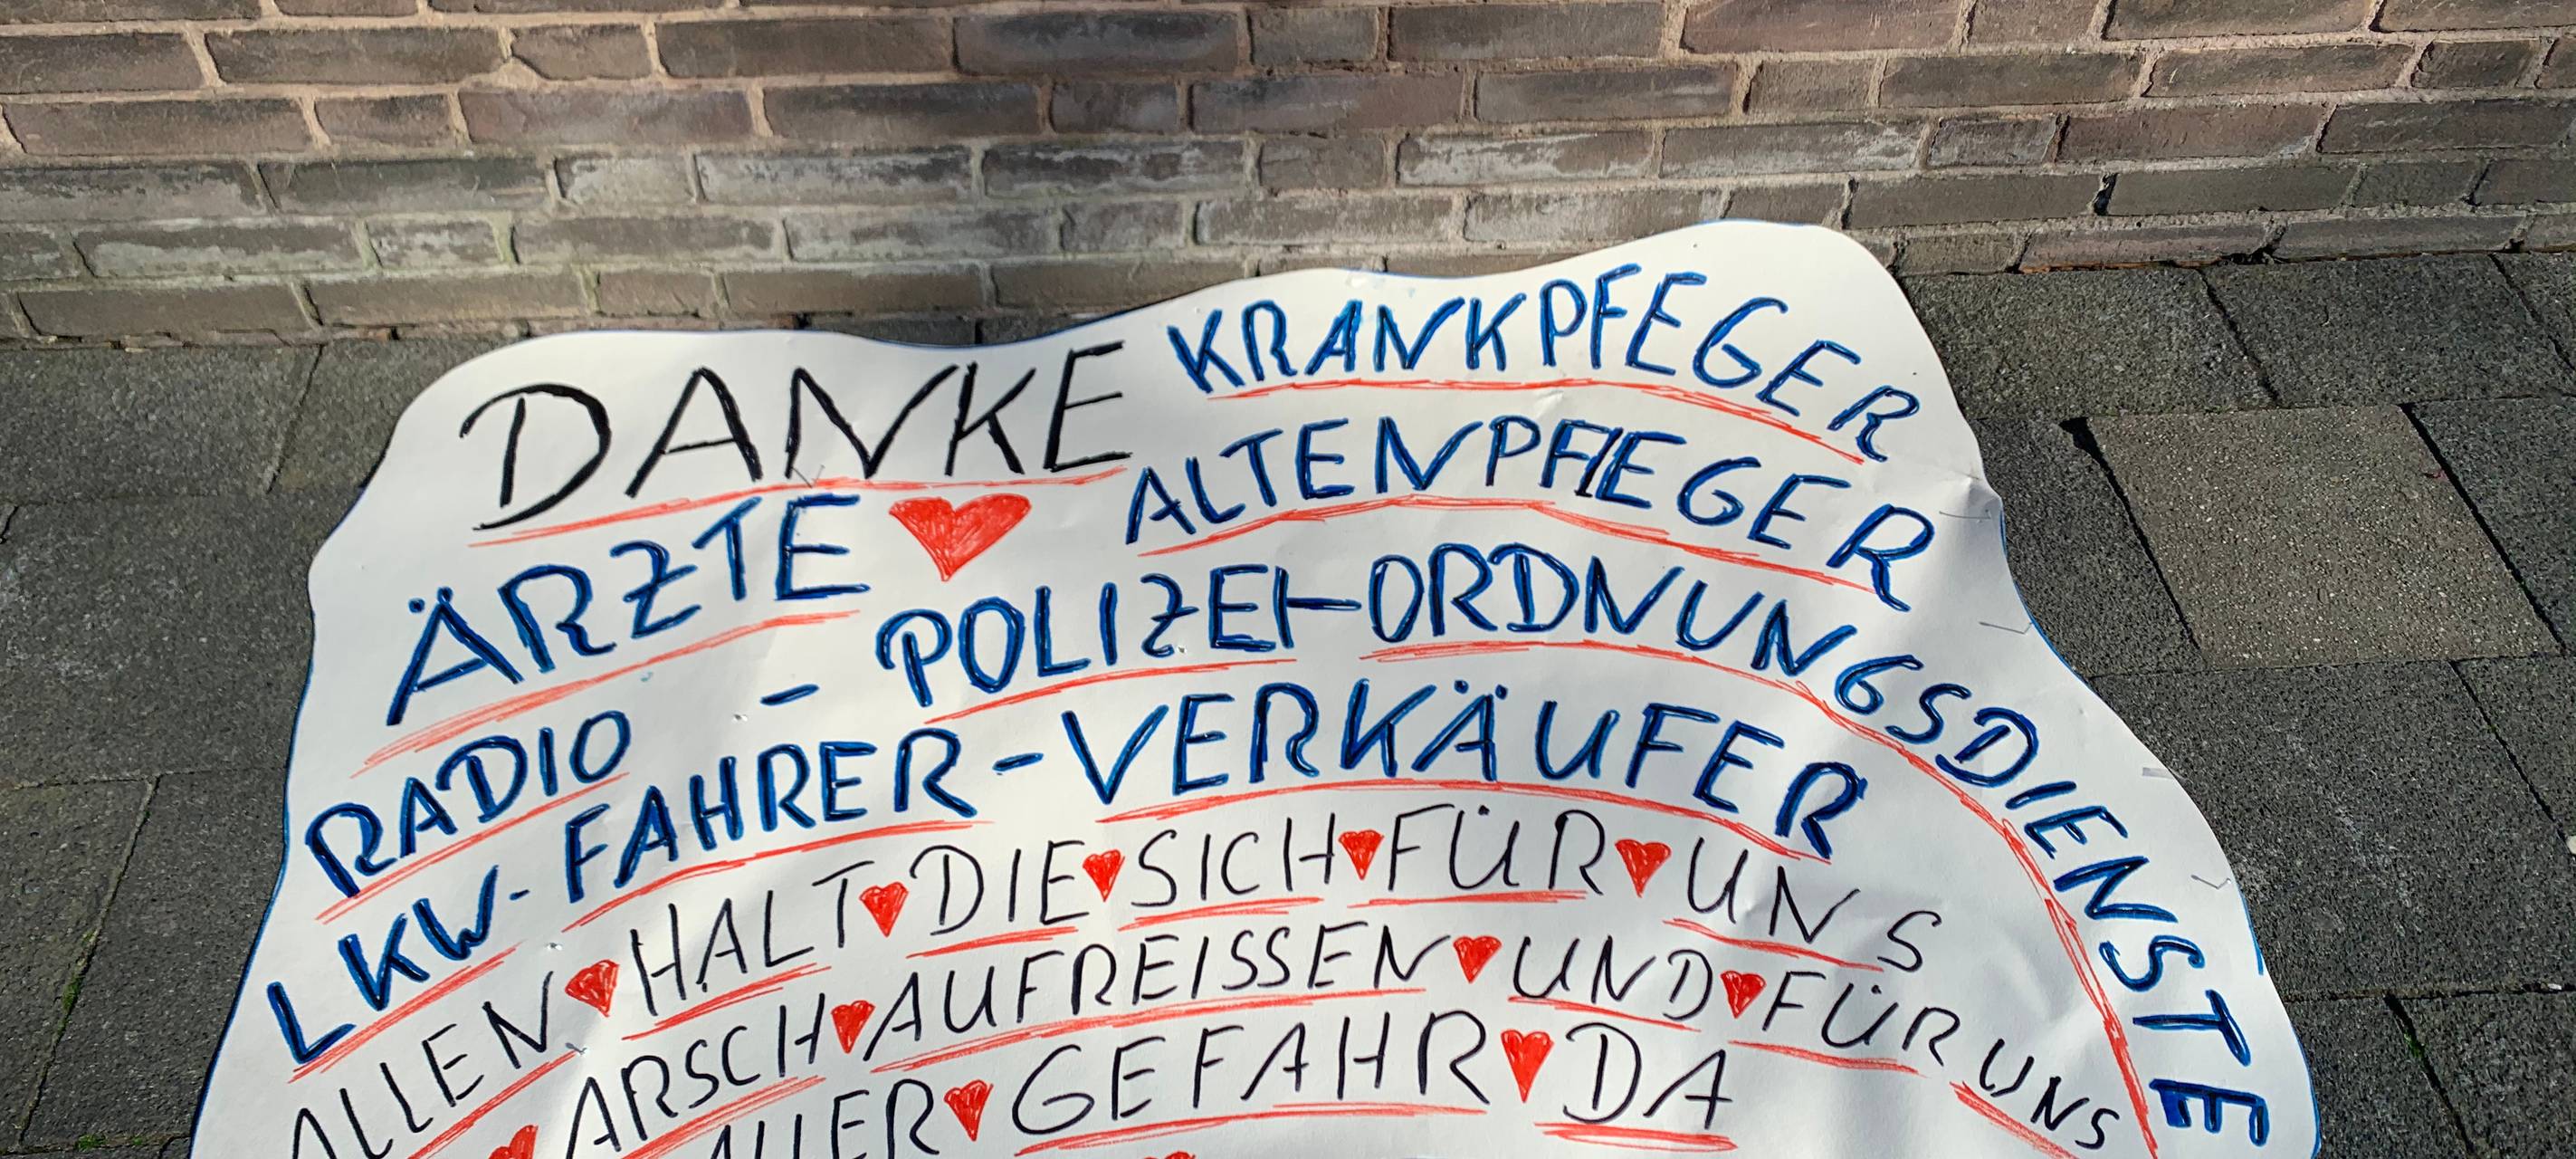 DANKE KRANKPFEGER
ÄRZTE ALTENPFlEGER
RADIO - POLIZEI-ORDNUNGSDIENSTE
LKW-FAHRER-VERKÄUFER
ALLEN HALT DIE SICH FÜR UNS
ARSCH AUFREISSEN UND FÜR UNS
ALLER GEFAHR DA